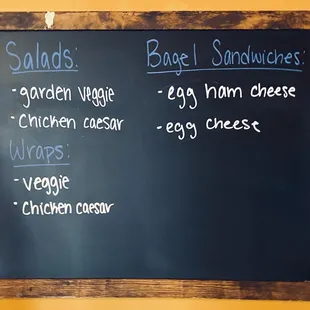 Salads:
- garden veggie
- Chicken caesar
Wraps:
- veggie
- Chicken caesar
Bagel Sandwiches:
- egg ham cheese
- egg cheese